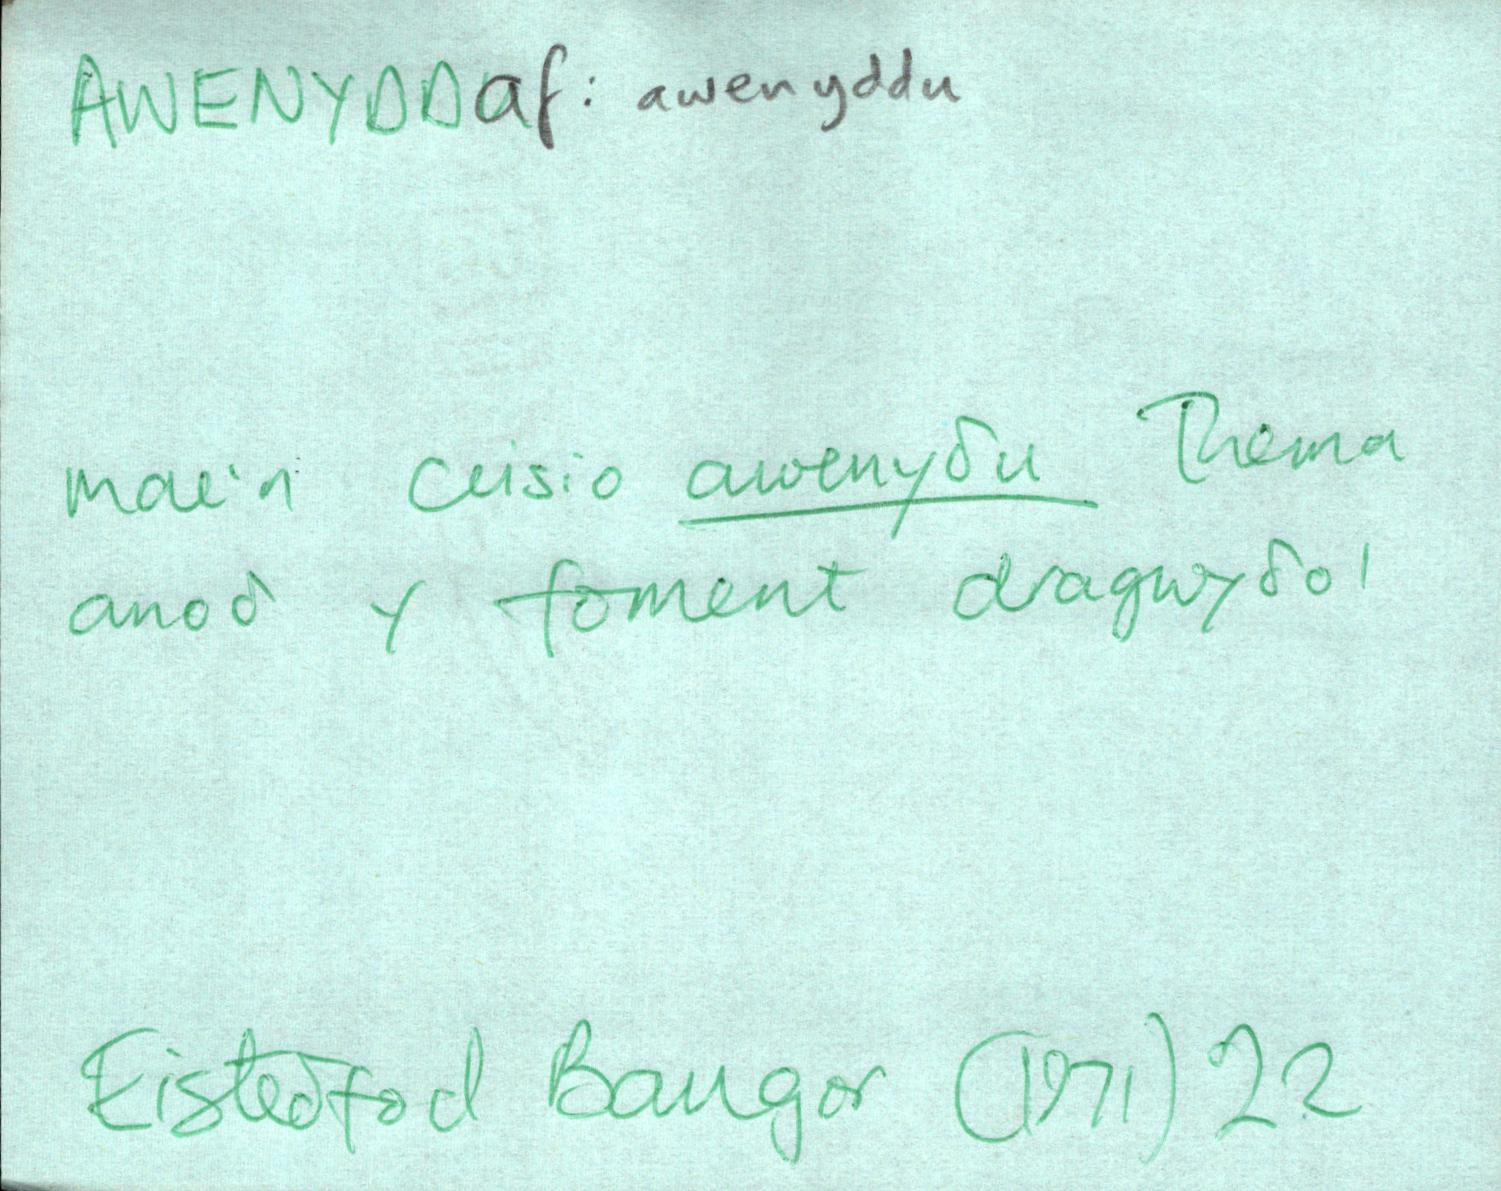 AWENYDDaf: awenyddu
mae'n ceisio awenyδu Thema
anoδ y foment dragwyδol
Eisteδfod Bangor (1971) 22